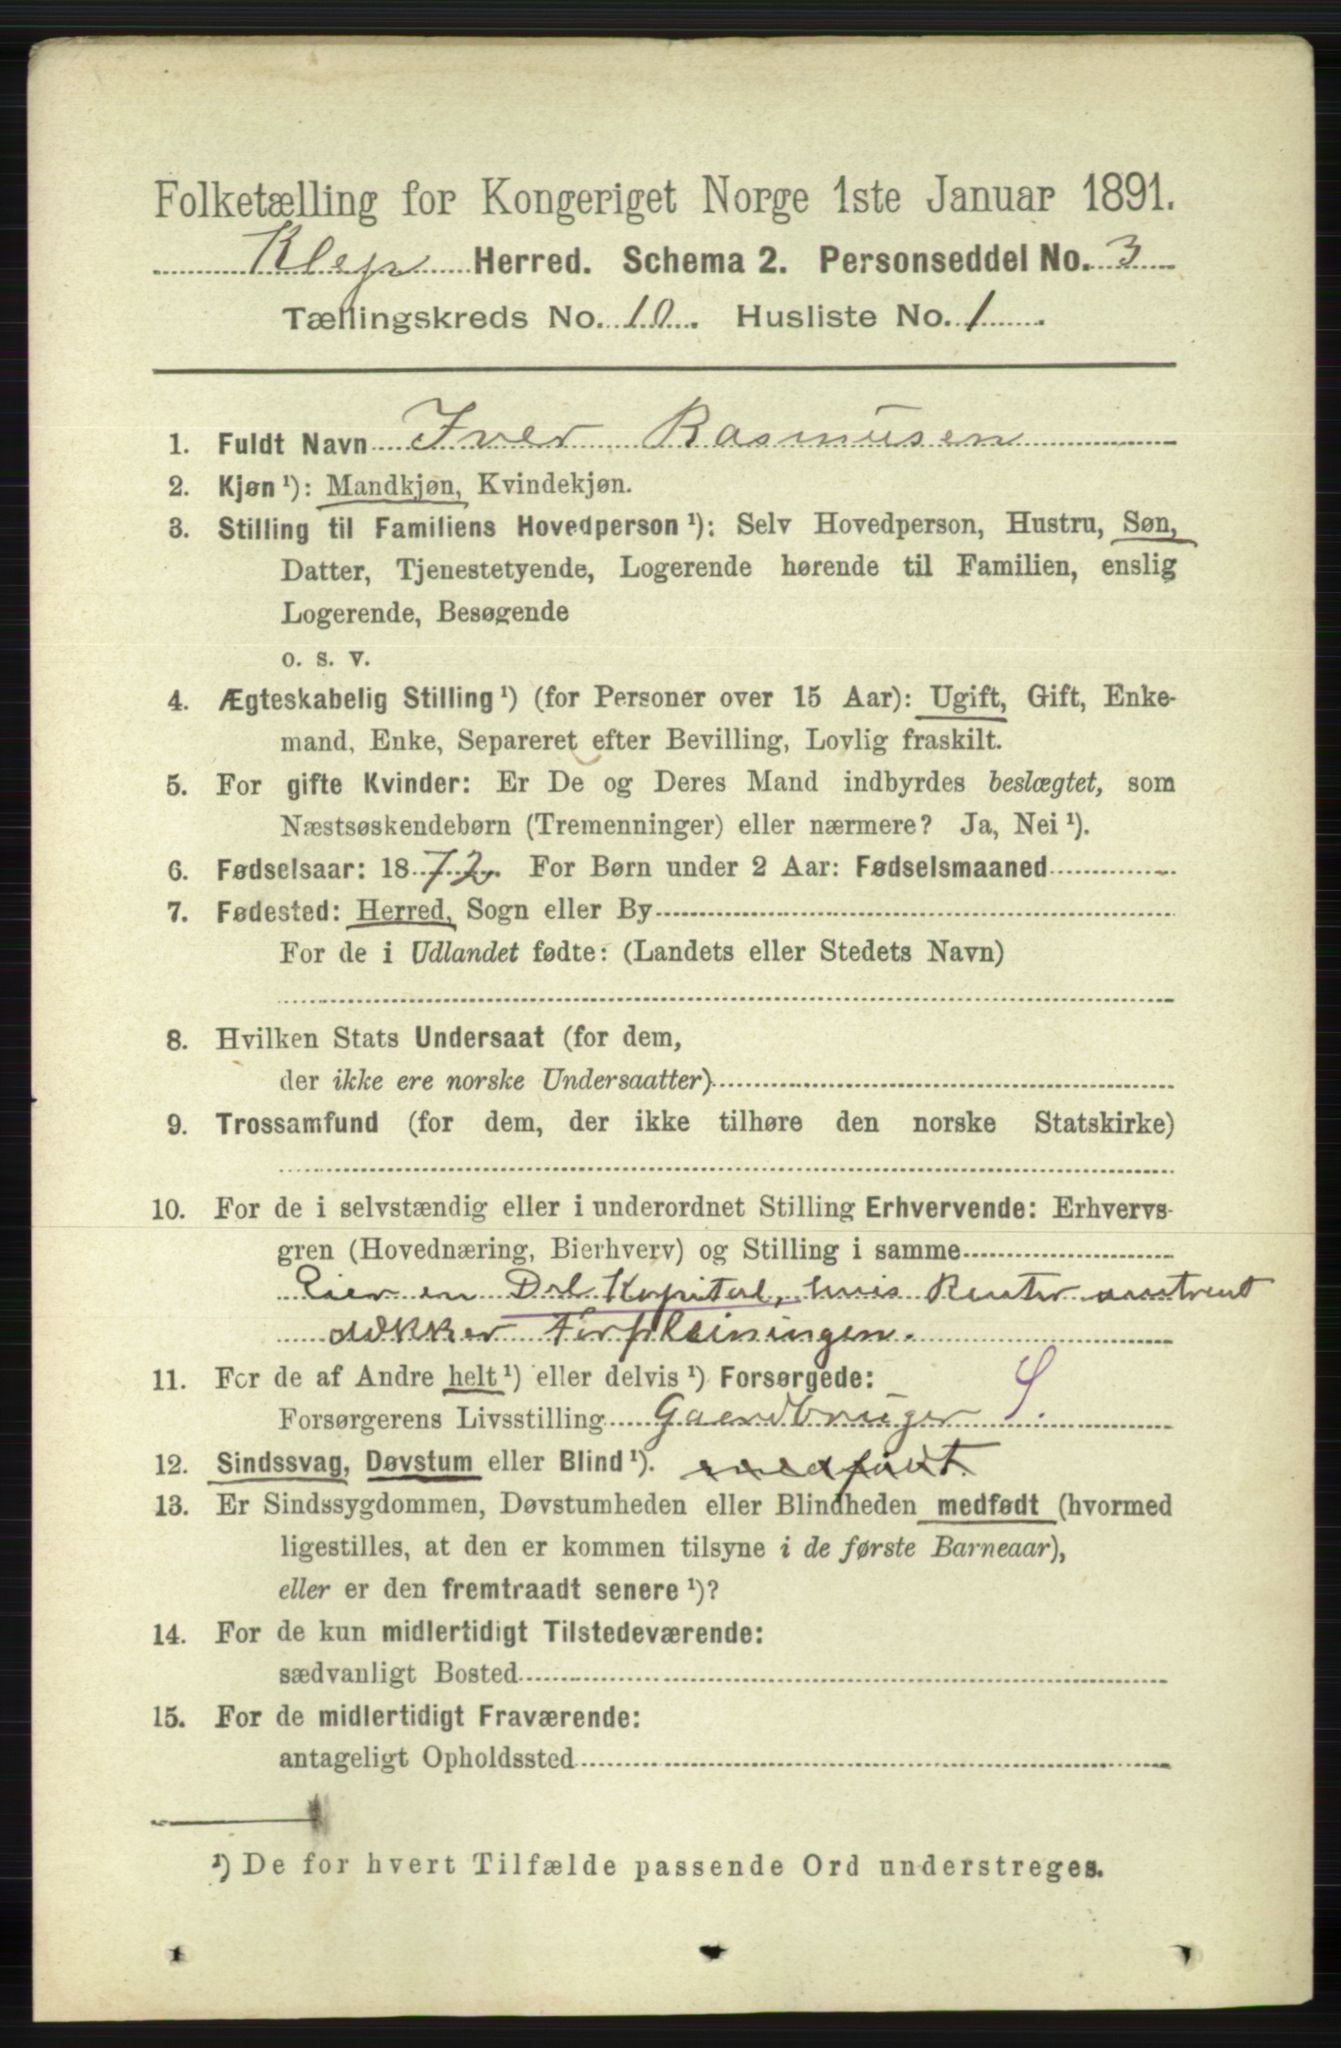 Folketælling for Kongeriget Norge 1ste Januar 1891.
Klep Herred. Schema 2. Personseddel No. 3
Tællingskreds No. 10. Husliste No. 1
1. Fuldt Navn Iver Rasmusen
2. Kjøn ¹): Mandkjøn, Kvindekjøn.
3. Stilling til Familiens Hovedperson ¹): Selv Hovedperson, Hustru, Søn,
Datter, Tjenestetyende, Logerende hørende til Familien, enslig
Logerende, Besøgende
o. s. v.
4. Ægteskabelig Stilling ¹) (for Personer over 15 Aar): Ugift, Gift, Enke-
mand, Enke, Separeret efter Bevilling, Lovlig fraskilt.
5. For gifte Kvinder: Er De og Deres Mand indbyrdes beslægtet, som
Næstsøskendebørn (Tremenninger) eller nærmere? Ja, Nei ¹).
6. Fødselsaar: 1872. For Børn under 2 Aar: Fødselsmaaned
7. Fødested: Herred, Sogn eller By
For de i Udlandet fødte: (Landets eller Stedets Navn)
8. Hvilken Stats Undersaat (for dem,
der ikke ere norske Undersaatter)
9. Trossamfund (for dem, der ikke tilhøre den norske Statskirke)
10. For de i selvstændig eller i underordnet Stilling Erhvervende: Erhvervs-
gren (Hovednæring, Bierhverv) og Stilling i samme
Eier en Del Kapital, hvis Renter omtrent
dækker Forpleiningen.
11. For de af Andre helt ¹) eller delvis ¹) Forsørgede:
Forsørgerens Livsstilling Gaardbruger S.
12. Sindssvag, Døvstum eller Blind ¹). medfødt.
13. Er Sindssygdommen, Døvstumheden eller Blindheden medfødt (hvormed
ligestilles, at den er kommen tilsyne i de første Barneaar),
eller er den fremtraadt senere ¹)?
14. For de kun midlertidigt Tilstedeværende:
sædvanligt Bosted
15. For de midlertidigt Fraværende:
antageligt Opholdssted
¹) De for hvert Tilfælde passende Ord understreges.